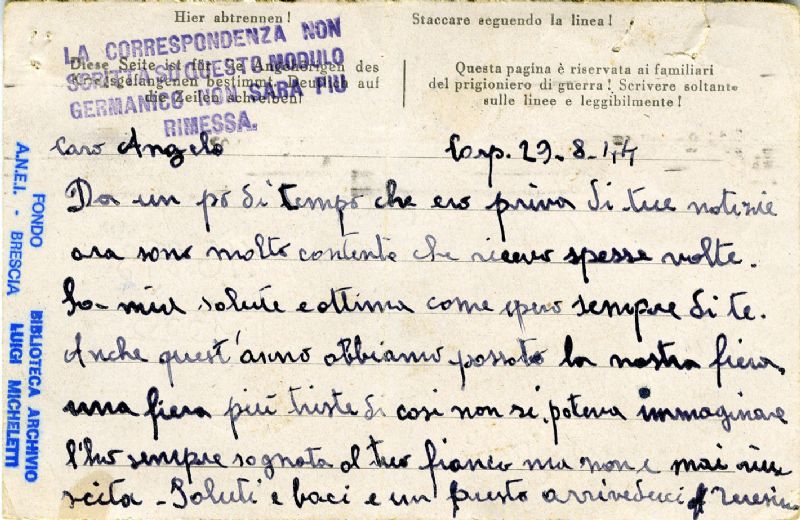 Hier abtrennen!
Staccare seguendo la linea!
LA CORRESPONDENZA NON
SCRITTA SU QUESTO MODULO
GERMANICO NON SARÀ PIÙ
RIMESSA.
Diese Seite ist für die Angehörigen des
Kriegsgefangenen bestimmt. Deutlich auf
die Zeilen schreiben!
Questa pagina è riservata ai familiari
del prigioniero di guerra! Scrivere soltanto
sulle linee e leggibilmente!
Caro Angelo
29-8-44
Da un pò di tempo che ero priva di tue notizie
ora sono molto contenta che ricevo spesse volte.
La mia salute e ottima come spero sempre di te.
Anche quest'anno abbiamo passato la nostra fiera,
una fiera più triste di cosi non si poteva immaginare
l'ho sempre sognata al tuo fianco ma non e mai riu
scita - Saluti e baci e un presto arrivederci
FONDO BIBLIOTECA ARCHIVIO
A.N.E.I. - BRESCIA LUIGI MICHELETTI